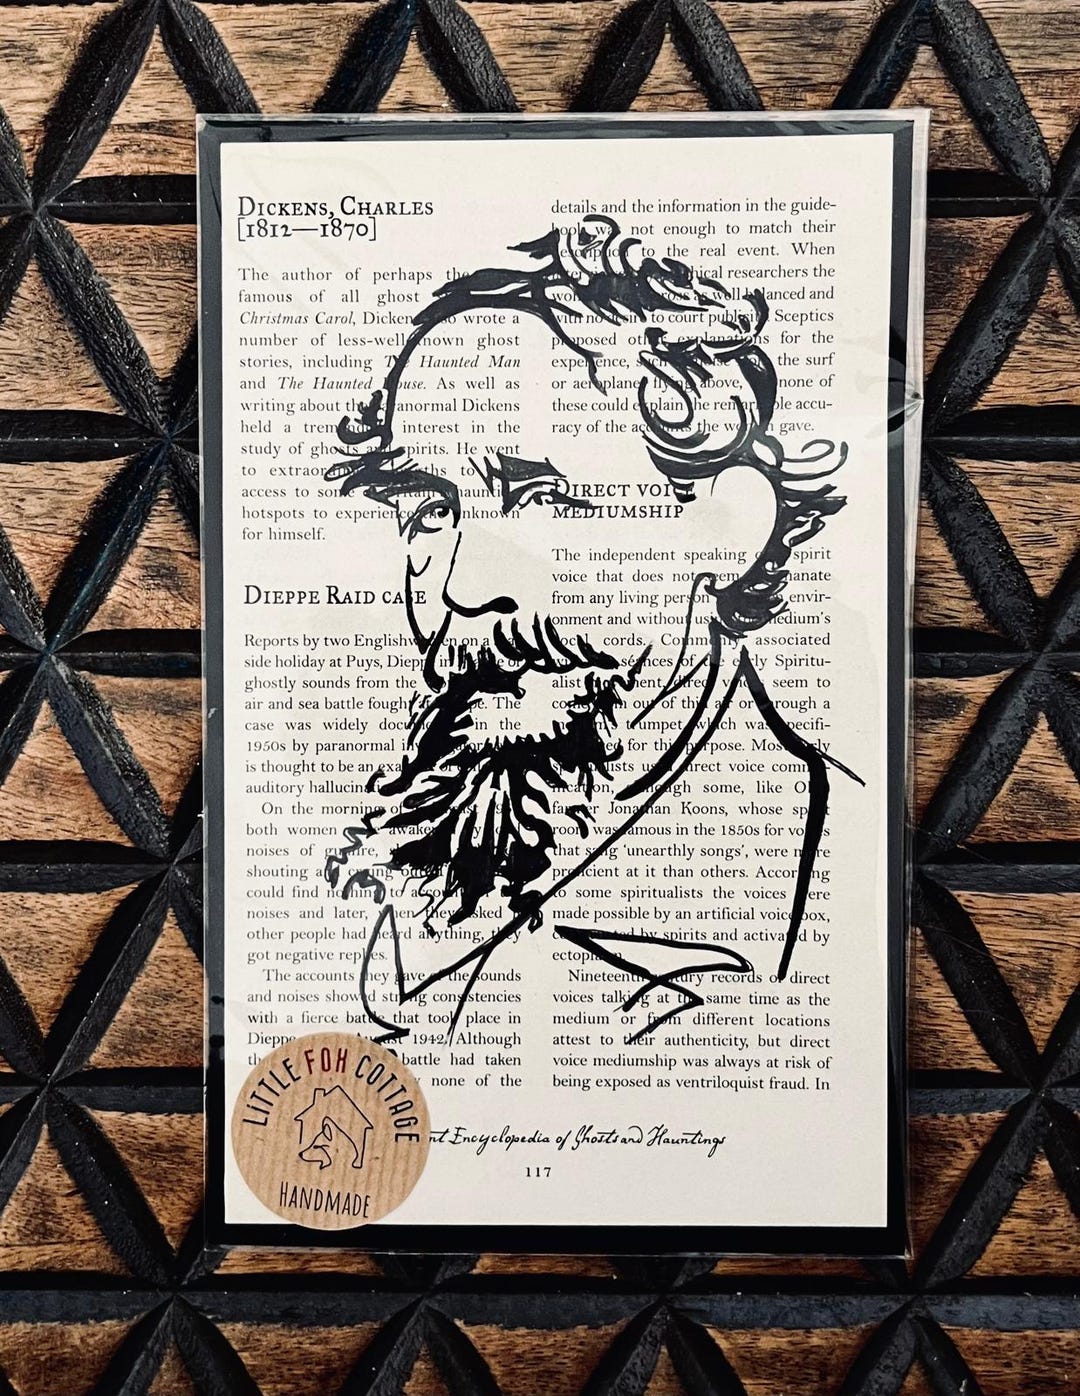 DICKENS, CHARLES
[1812—1870]
The author of perhaps the
famous of all ghost
Christmas Carol, Dickens also wrote a
number of less-well known ghost
stories, including The Haunted Man
and The Haunted House. As well as
writing about the paranormal Dickens
held a tremendous interest in the
study of ghosts and spirits. He went
to extraordinary lengths to
access to some of Britain's haunting
hotspots to experience the unknown
for himself.
DIEPPE RAID CASE
Reports by two Englishwomen on a
side holiday at Puys, Dieppe in
ghostly sounds from the
air and sea battle fought at Dieppe. The
case was widely documented in the
1950s by paranormal
is thought to be an example of
auditory hallucination
On the morning of
both women were awakened by
noises of gunfire,
shouting and crying out
could find nothing to account
noises and later, when they asked
other people had heard anything, they
got negative replies.
The accounts they gave of the sounds
and noises showed strong consistencies
with a fierce battle that took place in
Dieppe August 1942. Although
battle had taken
none of the
details and the information in the guide-
book was not enough to match their
description to the real event. When
the
women across as well balanced and
with no desire to court publicity. Sceptics
proposed other explanations for the
experience, such the surf
or aeroplanes flying above, none of
these could explain the remarkable accu-
racy of the accounts the women gave.
DIRECT VOICE
MEDIUMSHIP
The independent speaking of a spirit
voice that does not seem emanate
from any living person envir-
onment and without using medium's
vocal cords. Commonly associated
with séances of the early Spiritu-
alist movement, direct voices seem to
come from out of thin air or through a
trumpet, which was specifi-
for this purpose. Most early
direct voice commu-
nication, although some, like
farmer Jonathan Koons, whose spirit
room was famous in the 1850s for voices
that sang 'unearthly songs', were more
proficient at it than others. According
to some spiritualists the voices were
made possible by an artificial voice box,
by spirits and activated by
ectoplasm.
Nineteenth-century records of direct
voices talking at the same time as the
medium or from different locations
attest to their authenticity, but direct
voice mediumship was always at risk of
being exposed as ventriloquist fraud. In
Encyclopedia of Ghosts and Hauntings
117
LITTLE FOH COTTAGE
HANDMADE